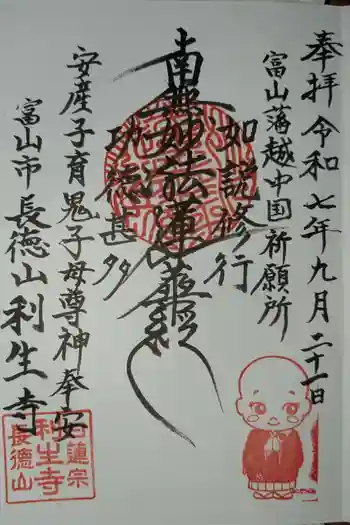 奉拝 令和七年九月二十一日
富山藩越中国祈願所
如説修行
南無妙法蓮華経
功徳甚多
安産子育鬼子母尊神奉安
富山市 長徳山 利生寺
日蓮宗
利生寺
長徳山